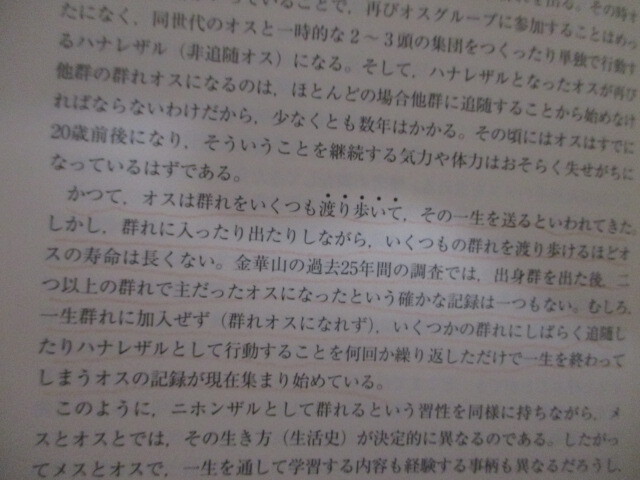 っていることで，再びオスグループに参加することはめっ
たになく，同世代のオスと一時的な2〜3頭の集団をつくったり単独で行動す
るハナレザル（非追随オス）になる。そして，ハナレザルとなったオスが再び
他群の群れオスになるのは，ほとんどの場合他群に追随することから始めなけ
ればならないわけだから，少なくとも数年はかかる。その頃にはオスはすでに
20歳前後になり，そういうことを継続する気力や体力はおそらく失せがちに
なっているはずである。
かつて，オスは群れをいくつも渡り歩いて，その一生を送るといわれてきた。
しかし，群れに入ったり出たりしながら，いくつもの群れを渡り歩けるほどオ
スの寿命は長くない。金華山の過去25年間の調査では，出身群を出た後，二
つ以上の群れで主だったオスになったという確かな記録は一つもない。むしろ，
一生群れに加入せず（群れオスになれず），いくつかの群れにしばらく追随し
たりハナレザルとして行動することを何回か繰り返しただけで一生を終わって
しまうオスの記録が現在集まり始めている。
このように，ニホンザルとして群れるという習性を同様に持ちながら，メ
スとオスとでは，その生き方（生活史）が決定的に異なるのである。したがっ
てメスとオスで，一生を通して学習する内容も経験する事柄も異なるだろうし，